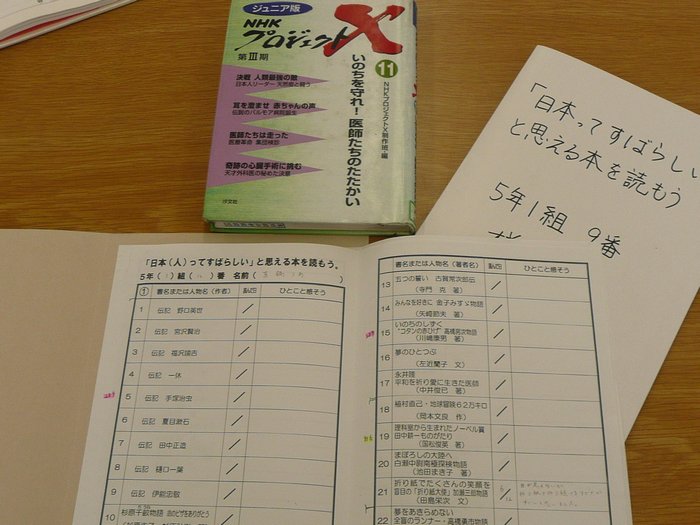 ジュニア版
NHK
プロジェクトX
第Ⅲ期
11
いのちを守れ! 医師たちのたたかい
NHKプロジェクトX制作班・編
決戦 人類最強の敵
日本人リーダー 天然痘と闘う
耳を澄ませ 赤ちゃんの声
伝説のパルモア病院誕生
医師たちは走った
医療革命 集団検診
奇跡の心臓手術に挑む
天才外科医の秘めた決意
汐文社
「日本ってすばらしい
と思える本を読もう
5年1組 9番
「日本(人)ってすばらしい」と思える本を読もう。
5年( )組( )番 名前( )
① 書名または人物名(作者) 読み四 ひとこと感そう
1 伝記 野口英世 /
2 伝記 宮沢賢治 /
3 伝記 福沢諭吉 /
4 伝記 一休 /
5 伝記 手塚治虫 /
6 伝記 夏目漱石 /
7 伝記 田中正造 /
8 伝記 樋口一葉 /
9 伝記 伊能忠敬 /
10 杉原千畝物語
書名または人物名(著者名) ひとこと感そう
13 五つの誓い 古賀常次郎伝
(寺門 克 著) /
14 みんなを好きに 金子みすゞ物語
(矢崎節夫 著) /
15 いのちのしずく
"コタンの赤ひげ"高橋房次物語
(川嶋康男 著) /
16 夢のひとつぶ
(左近蘭子 文) /
17 永井隆
平和を祈り愛に生きた医師
(中井俊已 著) /
18 植村直己・地球冒険62万キロ
(岡本文良 作) /
19 理科室から生まれたノーベル賞
田中耕一ものがたり
(国松俊英 著) /
20 まぼろしの大陸へ
白瀬中尉南極探検物語
(池田まき子 著) /
21 折り紙でたくさんの笑顔を
盲目の「折り紙大使」加瀬三郎物語
(田島栄次 文)
22 夢をあきらめない
全盲のランナー・高橋勇市物語